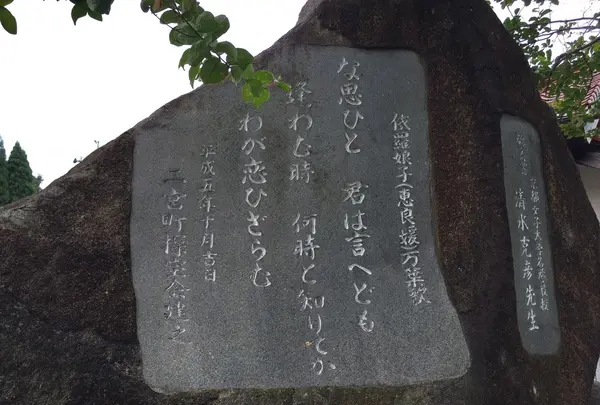 京都女子大学名誉教授
清水克彦先生
依羅娘子(恵良媛)万葉歌
な思ひと 君は言へども
逢わむ時 何時と知りてか
わが恋ひざらむ
平成五年十月吉日
二宮町会建之